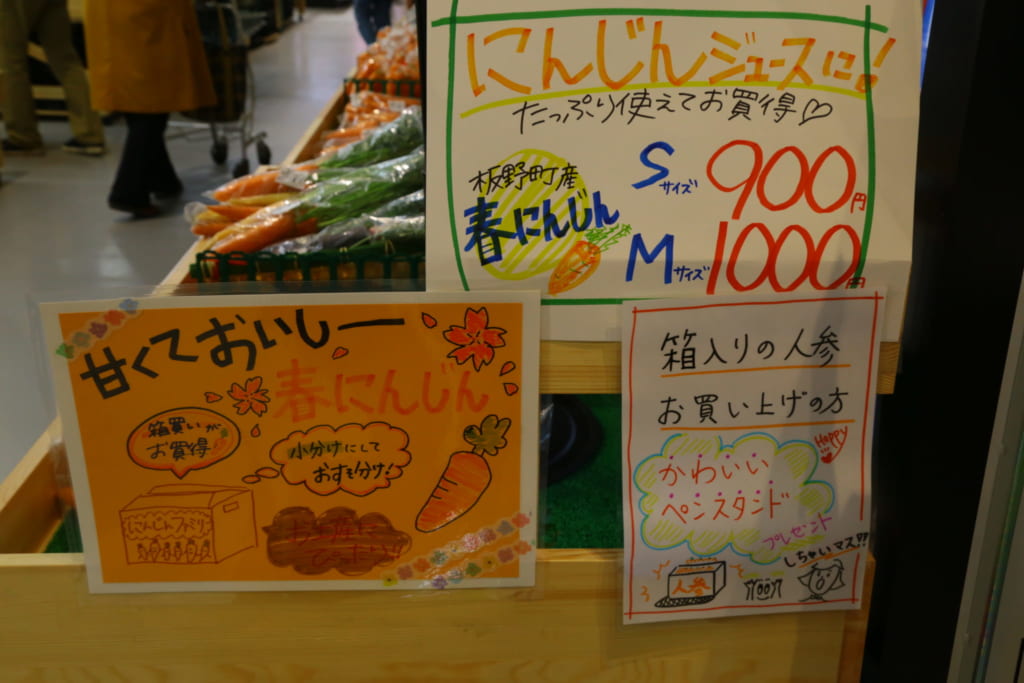 にんじんジュースに!
たっぷり使えてお買得♡
板野町産
春にんじん
Sサイズ 900円
Mサイズ 1000円
甘くておいしー
春にんじん
箱買いが
お買得
小分けにして
おすそ分け!
にんじんファミリー
お土産に
ぴったり!!
箱入りの人参
お買い上げの方
Happy
かわいい
ペンスタンド
プレゼント
しちゃいマス!?
人参